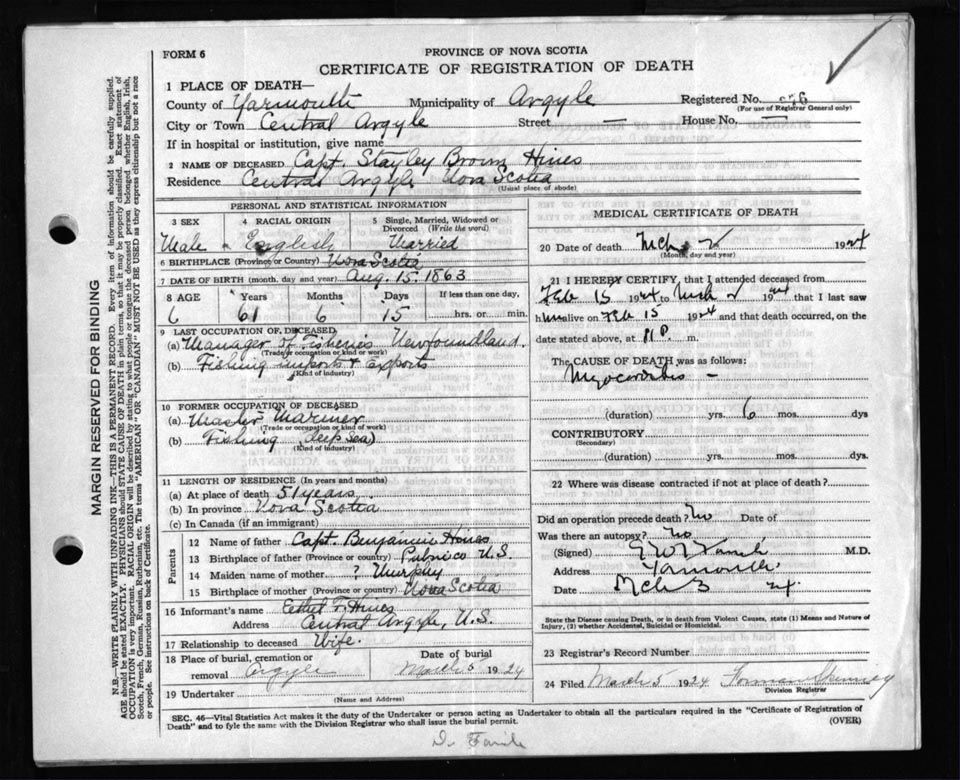 FORM 6
PROVINCE OF NOVA SCOTIA
CERTIFICATE OF REGISTRATION OF DEATH
1 PLACE OF DEATH—
County of Yarmouth Municipality of Argyle Registered No.
(For use of Registrar General only)
City or Town Central Argyle Street — House No. —
If in hospital or institution, give name
2 NAME OF DECEASED Capt. Stayley Brown Hines
Residence Central Argyle Nova Scotia
(Usual place of abode)
PERSONAL AND STATISTICAL INFORMATION
3 SEX 4 RACIAL ORIGIN 5 Single, Married, Widowed or Divorced (Write the word)
Male English Married
6 BIRTHPLACE (Province or Country) Nova Scotia
7 DATE OF BIRTH (month, day and year) Aug. 15. 1863
8 AGE Years Months Days If less than one day,
61 6 15 hrs. or min.
9 LAST OCCUPATION OF DECEASED
(a) Manager of Fisheries Newfoundland.
(Trade or occupation or kind of work)
(b) Fishing imports & Exports
(Kind of industry)
10 FORMER OCCUPATION OF DECEASED
(a) Master Mariner
(Trade or occupation or kind of work)
(b) Fishing (deep sea)
(Kind of industry)
11 LENGTH OF RESIDENCE (In years and months)
(a) At place of death 51 years
(b) In province Nova Scotia
(c) In Canada (if an immigrant)
Parents
12 Name of father Capt. Benjamin Hines
13 Birthplace of father (Province or country) Pubnico N.S.
14 Maiden name of mother ? Murphy
15 Birthplace of mother (Province or country) Nova Scotia
16 Informant's name Ethel F. Hines
Address Central Argyle, N.S.
17 Relationship to deceased Wife.
18 Place of burial, cremation or removal Argyle Date of burial March 5 1924
19 Undertaker
(Name and Address)
MEDICAL CERTIFICATE OF DEATH
20 Date of death Mch 2 1924
(Month, day and year)
21 I HEREBY CERTIFY, that I attended deceased from
Feb 15 1924 to Mch 2 1924 that I last saw
him alive on Feb 15 1924 and that death occurred, on
date stated above, at 11 P. m.
The CAUSE OF DEATH was as follows:
Myocarditis —
(duration) yrs. 6 mos. dys
CONTRIBUTORY
(Secondary)
(duration) yrs. mos. dys.
22 Where was disease contracted if not at place of death?
Did an operation precede death? No Date of
Was there an autopsy? No
(Signed) M.D.
Address Yarmouth
Date Mch 3 24
State the Disease causing Death, or in death from Violent Causes, state (1) Means and Nature of Injury, (2) whether Accidental, Suicidal or Homicidal.
23 Registrar's Record Number
24 Filed March 5 1924
Division Registrar
SEC. 46—Vital Statistics Act makes it the duty of the Undertaker or person acting as Undertaker to obtain all the particulars required in the "Certificate of Registration of
Death" and to fyle the same with the Division Registrar who shall issue the burial permit.
(OVER)
MARGIN RESERVED FOR BINDING
N.B.—WRITE PLAINLY WITH UNFADING INK—THIS IS A PERMANENT RECORD. Every item of information should be carefully supplied.
AGE should be stated EXACTLY. PHYSICIANS should STATE CAUSE OF DEATH in plain terms, so that it may be properly classified. Exact statement of
OCCUPATION is very important. RACIAL ORIGIN will be described by stating to what people or tongue the deceased person belonged, whether English, Irish,
Scotch, French, German, Russian, Ruthenian, etc. The terms "AMERICAN" OR "CANADIAN" MUST NOT BE USED as they express citizenship but not a race
or people. See instructions on back of Certificate.